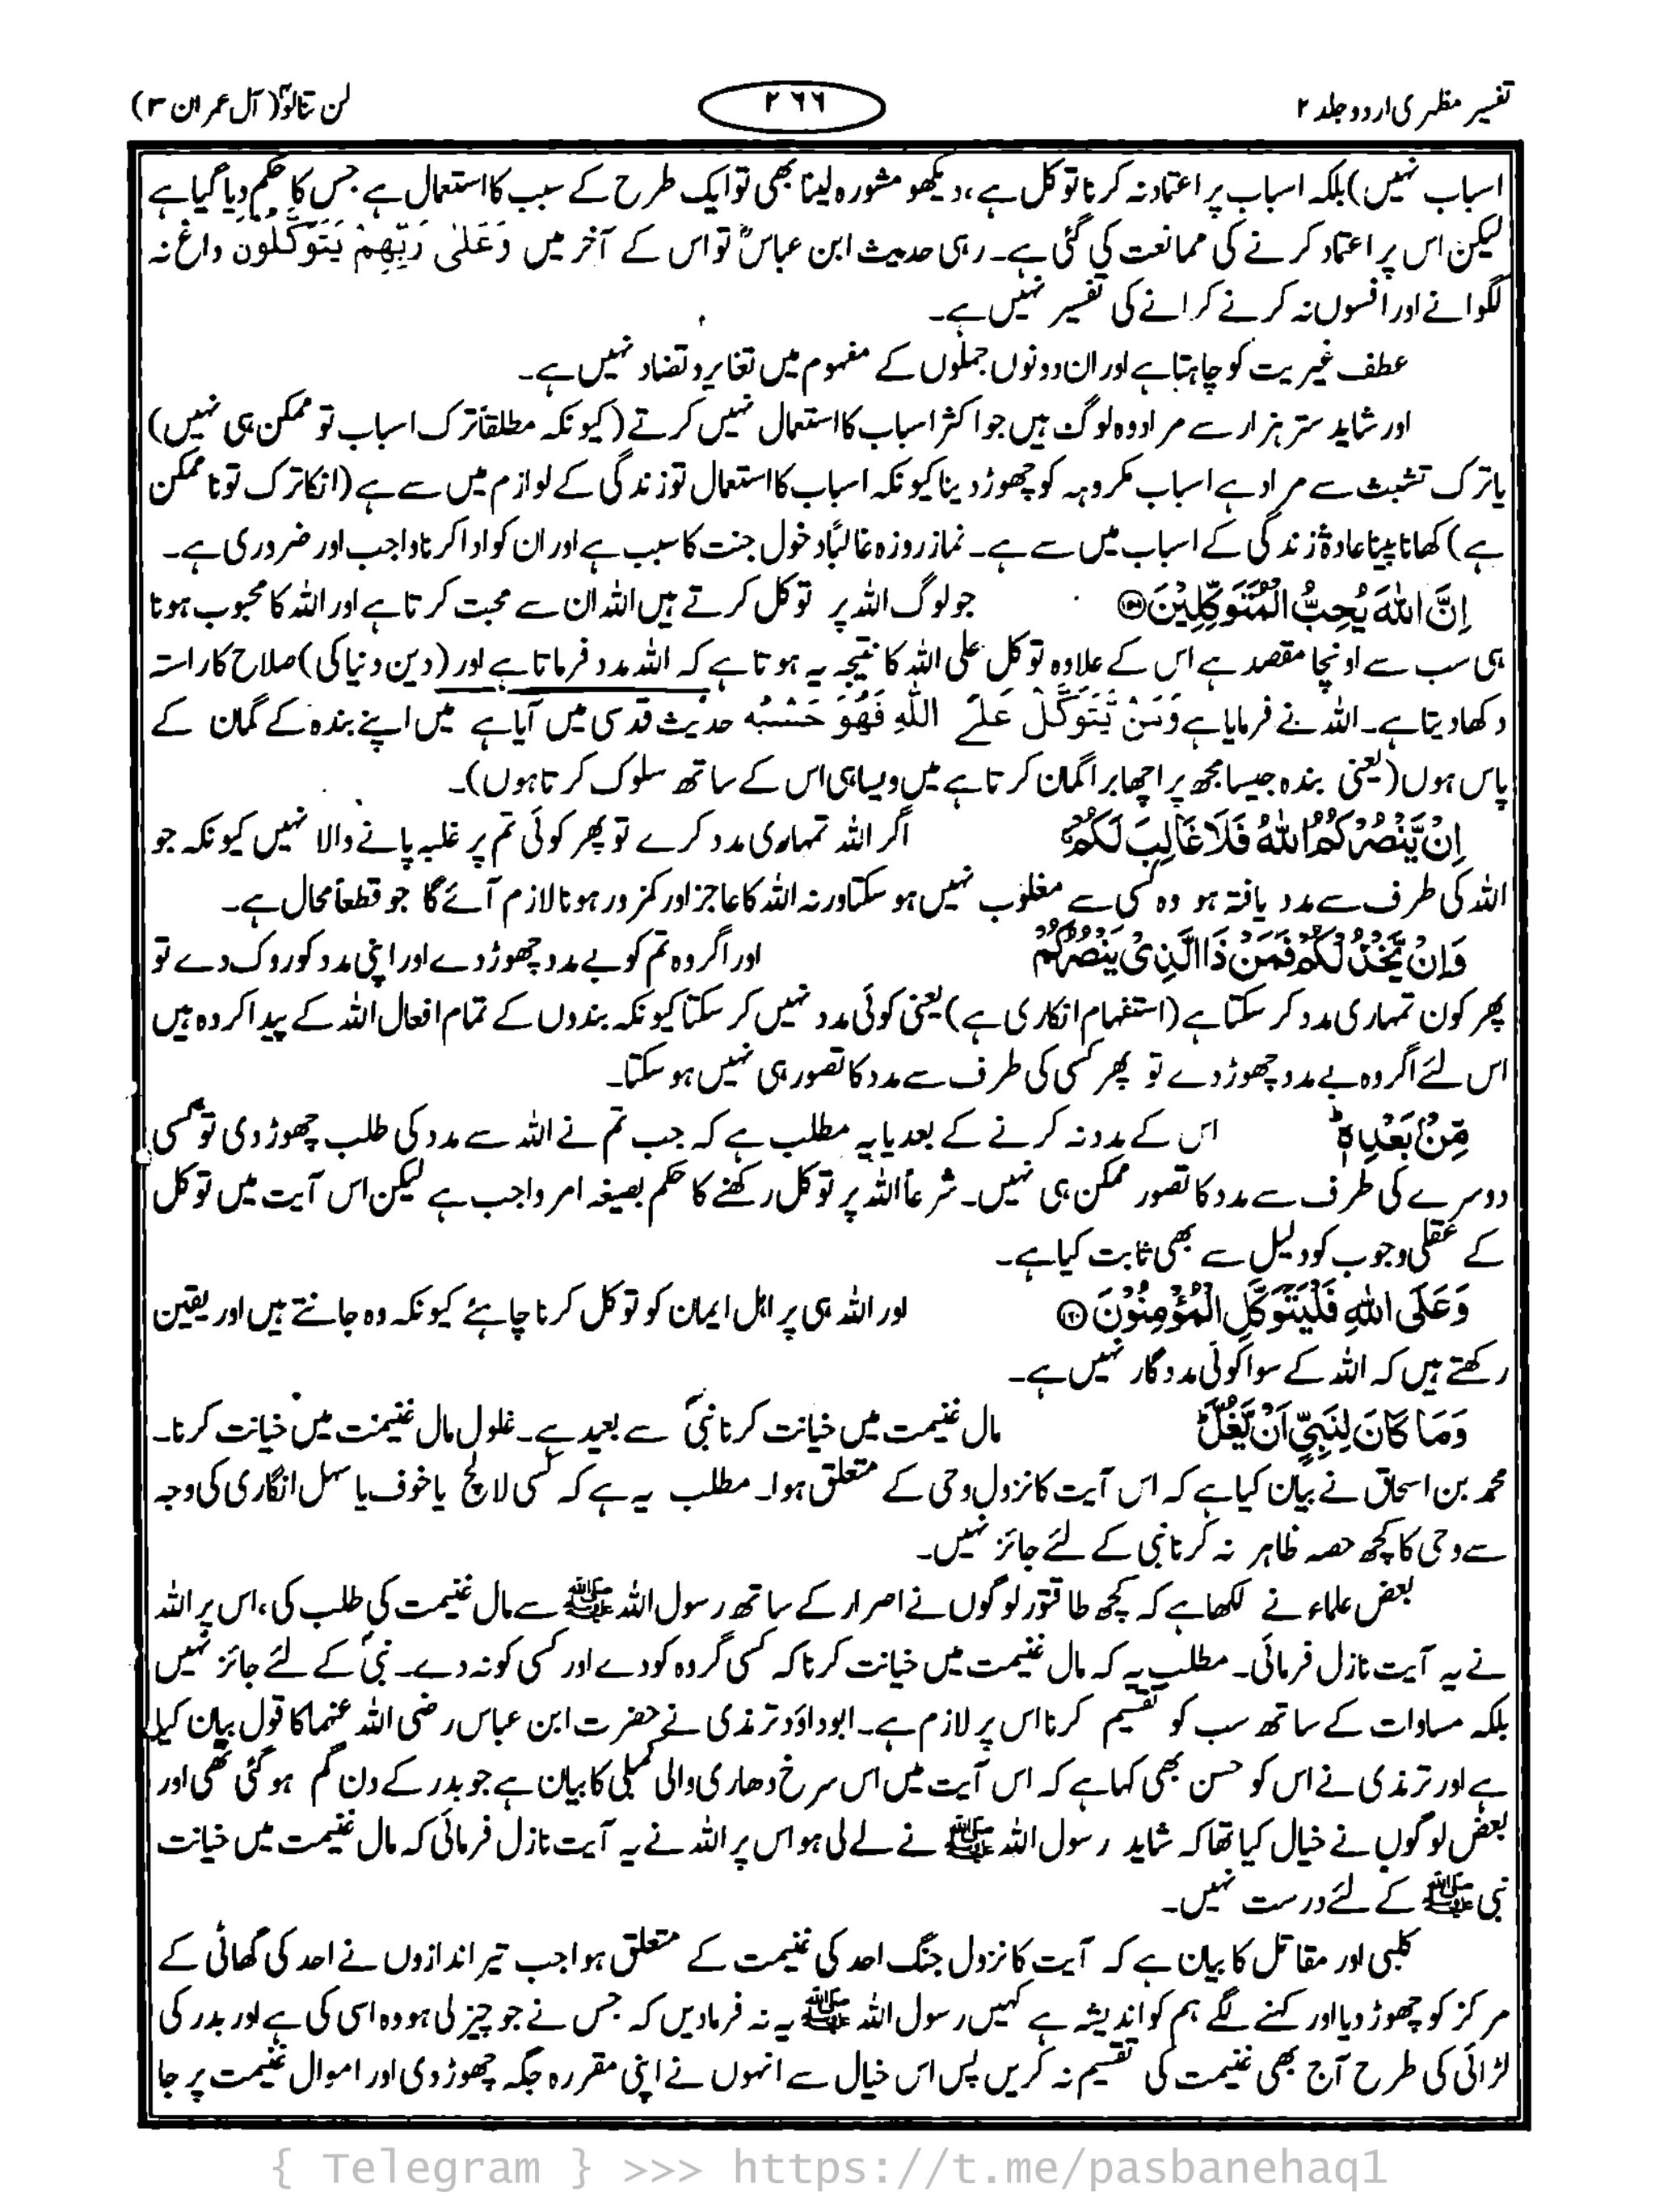 تفسیر مظہری اردو جلد ۲
۲۶۶
لن تنالوا (آل عمران ۳)
اسباب نہیں) بلکہ اسباب پر اعتماد نہ کرنا توکل ہے، دیکھو مشورہ لینا بھی تو ایک طرح کے سبب کا استعمال ہے جس کا حکم دیا گیا ہے
لیکن اس پر اعتماد کرنے کی ممانعت کی گئی ہے۔ رہی حدیث ابن عباسؓ تو اس کے آخر میں وَعَلٰی رَبِّهِمْ یَتَوَکَّلُون داغ نہ
لگوانے اور افسوں نہ کرنے کرانے کی تفسیر نہیں ہے۔
عطف غیریت کو چاہتا ہے اور ان دونوں جملوں کے مفہوم میں تغایر و تضاد نہیں ہے۔
اور شاید ستر ہزار سے مراد وہ لوگ ہیں جو اکثر اسباب کا استعمال نہیں کرتے (کیونکہ مطلقاً ترک اسباب تو ممکن ہی نہیں)
یا ترک تشبث سے مراد ہے اسباب مکروہہ کو چھوڑ دینا کیونکہ اسباب کا استعمال تو زندگی کے لوازم میں سے ہے (انکا ترک تو نا ممکن
ہے) کھانا پینا عادۃً زندگی کے اسباب میں سے ہے۔ نماز روزہ غالباً دخول جنت کا سبب ہے اور ان کو ادا کرنا واجب اور ضروری ہے۔
اِنَّ اللّٰهَ یُحِبُّ الْمُتَوَکِّلِیْنَ ۝۱۵۹ جو لوگ اللہ پر توکل کرتے ہیں اللہ ان سے محبت کرتا ہے اور اللہ کا محبوب ہونا
ہی سب سے اونچا مقصد ہے اس کے علاوہ توکل علی اللہ کا نتیجہ یہ ہوتا ہے کہ اللہ مدد فرماتا ہے اور (دین دنیا کی) صلاح کا راستہ
دکھا دیتا ہے۔ اللہ نے فرمایا ہے وَمَنْ یَّتَوَکَّلْ عَلَی اللّٰهِ فَهُوَ حَسْبُه حدیث قدسی میں آیا ہے میں اپنے بندہ کے گمان کے
پاس ہوں (یعنی بندہ جیسا مجھ پر اچھا برا گمان کرتا ہے میں ویسا ہی اس کے ساتھ سلوک کرتا ہوں)۔
اِنْ یَّنْصُرْکُمُ اللّٰهُ فَلَا غَالِبَ لَکُمْ اگر اللہ تمہاری مدد کرے تو پھر کوئی تم پر غلبہ پانے والا نہیں کیونکہ جو
اللہ کی طرف سے مدد یافتہ ہو وہ کسی سے مغلوب نہیں ہو سکتا ورنہ اللہ کا عاجز اور کمزور ہونا لازم آئے گا جو قطعاً محال ہے۔
وَاِنْ یَّخْذُلْکُمْ فَمَنْ ذَا الَّذِیْ یَنْصُرُکُمْ اور اگر وہ تم کو بے مدد چھوڑ دے اور اپنی مدد کو روک دے تو
پھر کون تمہاری مدد کر سکتا ہے (استفہام انکاری ہے) یعنی کوئی مدد نہیں کر سکتا کیونکہ بندوں کے تمام افعال اللہ کے پیدا کردہ ہیں
اس لئے اگر وہ بے مدد چھوڑ دے تو پھر کسی کی طرف سے مدد کا تصور ہی نہیں ہو سکتا۔
مِّنْۢ بَعْدِهٖ ؕ اس کے مدد نہ کرنے کے بعد یا یہ مطلب ہے کہ جب تم نے اللہ سے مدد کی طلب چھوڑ دی تو کسی
دوسرے کی طرف سے مدد کا تصور ممکن ہی نہیں۔ شرعاً اللہ پر توکل رکھنے کا حکم بصیغہ امر واجب ہے لیکن اس آیت میں توکل
کے عقلی وجوب کو دلیل سے بھی ثابت کیا ہے۔
وَعَلَی اللّٰهِ فَلْیَتَوَکَّلِ الْمُؤْمِنُوْنَ ۝۱۶۰ اور اللہ ہی پر اہل ایمان کو توکل کرنا چاہئے کیونکہ وہ جانتے ہیں اور یقین
رکھتے ہیں کہ اللہ کے سوا کوئی مددگار نہیں ہے۔
وَمَا کَانَ لِنَبِیٍّ اَنْ یَّغُلَّ ؕ مال غنیمت میں خیانت کرنا نبیؐ سے بعید ہے۔ غلول مال غنیمت میں خیانت کرنا۔
محمد بن اسحاق نے بیان کیا ہے کہ اس آیت کا نزول وحی کے متعلق ہوا۔ مطلب یہ ہے کہ کسی لالچ یا خوف یا سہل انگاری کی وجہ
سے وحی کا کچھ حصہ ظاہر نہ کرنا نبی کے لئے جائز نہیں۔
بعض علماء نے لکھا ہے کہ کچھ طاقتور لوگوں نے اصرار کے ساتھ رسول اللہ ﷺ سے مال غنیمت کی طلب کی، اس پر اللہ
نے یہ آیت نازل فرمائی۔ مطلب یہ کہ مال غنیمت میں خیانت کرنا کہ کسی گروہ کو دے اور کسی کو نہ دے۔ نبیؐ کے لئے جائز نہیں
بلکہ مساوات کے ساتھ سب کو تقسیم کرنا اس پر لازم ہے۔ ابوداؤد ترمذی نے حضرت ابن عباس رضی اللہ عنہما کا قول بیان کیا
ہے اور ترمذی نے اس کو حسن بھی کہا ہے کہ اس آیت میں اس سرخ دھاری والی کملی کا بیان ہے جو بدر کے دن گم ہو گئی تھی اور
بعض لوگوں نے خیال کیا تھا کہ شاید رسول اللہ ﷺ نے لے لی ہو اس پر اللہ نے یہ آیت نازل فرمائی کہ مال غنیمت میں خیانت
نبی ﷺ کے لئے درست نہیں۔
کلبی اور مقاتل کا بیان ہے کہ آیت کا نزول جنگ احد کی غنیمت کے متعلق ہوا جب تیر اندازوں نے احد کی گھاٹی کے
مرکز کو چھوڑ دیا اور کہنے لگے ہم کو اندیشہ ہے کہیں رسول اللہ ﷺ یہ نہ فرمادیں کہ جس نے جو چیز لی ہو وہ اسی کی ہے اور بدر کی
لڑائی کی طرح آج بھی غنیمت کی تقسیم نہ کریں پس اس خیال سے انہوں نے اپنی مقررہ جگہ چھوڑ دی اور اموال غنیمت پر جا
{ Telegram } >>> https://t.me/pasbanehaq1